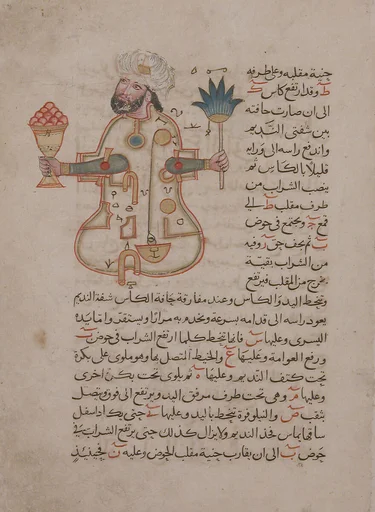 جنبة مقلبه وعلى طرفه
ط وقد ارتفع كاس ك
الى ان صارت حافته
بين شفتى النديم
واندفع راسه الى ورايه
قليلا بالكاس ثم
ينصب الشراب من
طرف مقلب ط الى
قمع ويجتمع فى حوض
ب ثم يجف حتى روفيه
من الشراب بقية
يخرج من المقلب فيرتفع
وتنحط اليد والكاس وعند مفارقة حافة الكاس شفة النديم
يعود راسه الى قدامه بسرعة ويخدم به مرارا ويستقر واما يده
اليسرى وعليها س فانها تنحط كلما ارتفع الشراب فى حوض ب
ورفع العوامة وعليها ع والخيط المتصل بها وهو ملوى على بكرة
تحت كتف النديم وعليها ه ثم يلوى تحت بكرة اخرى
وعليها م وهى تحت طرف مرفق اليد ويرتفع الى فوق ويتصل
بثقب ص والنيلوفرة تنحط باليد وعليها حتى يكاد اسفل
ساقها يماس فخذ النديم ولا يزال كذلك حتى يرتفع الشراب فى
حوض ب الى ان يقارب جنبة مقلب الحوض وعليه ن فحينئذ